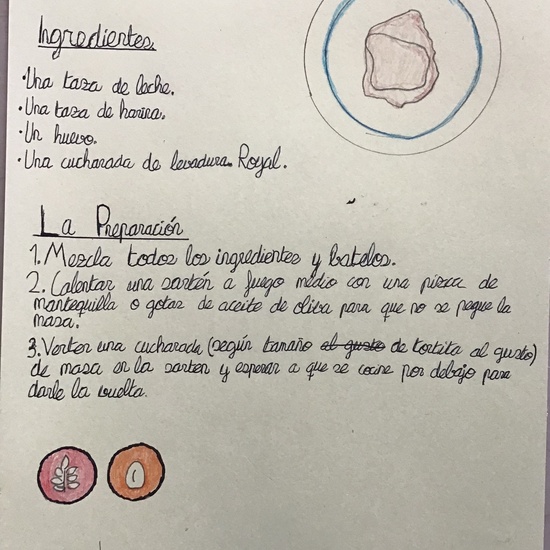 Ingredientes.
·Una taza de leche.
·Una taza de harina.
·Un huevo.
·Una cucharada de levadura Royal.
La Preparación
1. Mezcla todos los ingredientes y batelos.
2. Calentar una sartén a fuego médio con una pieza de
mantequilla o gotas de aceite de oliva para que no se pegue la
masa.
3. Verter una cucharada (según tamaño al gusto de tortita al gusto)
de masa en la sarten y esperar a que se cocine por debajo para
darle la vuelta.